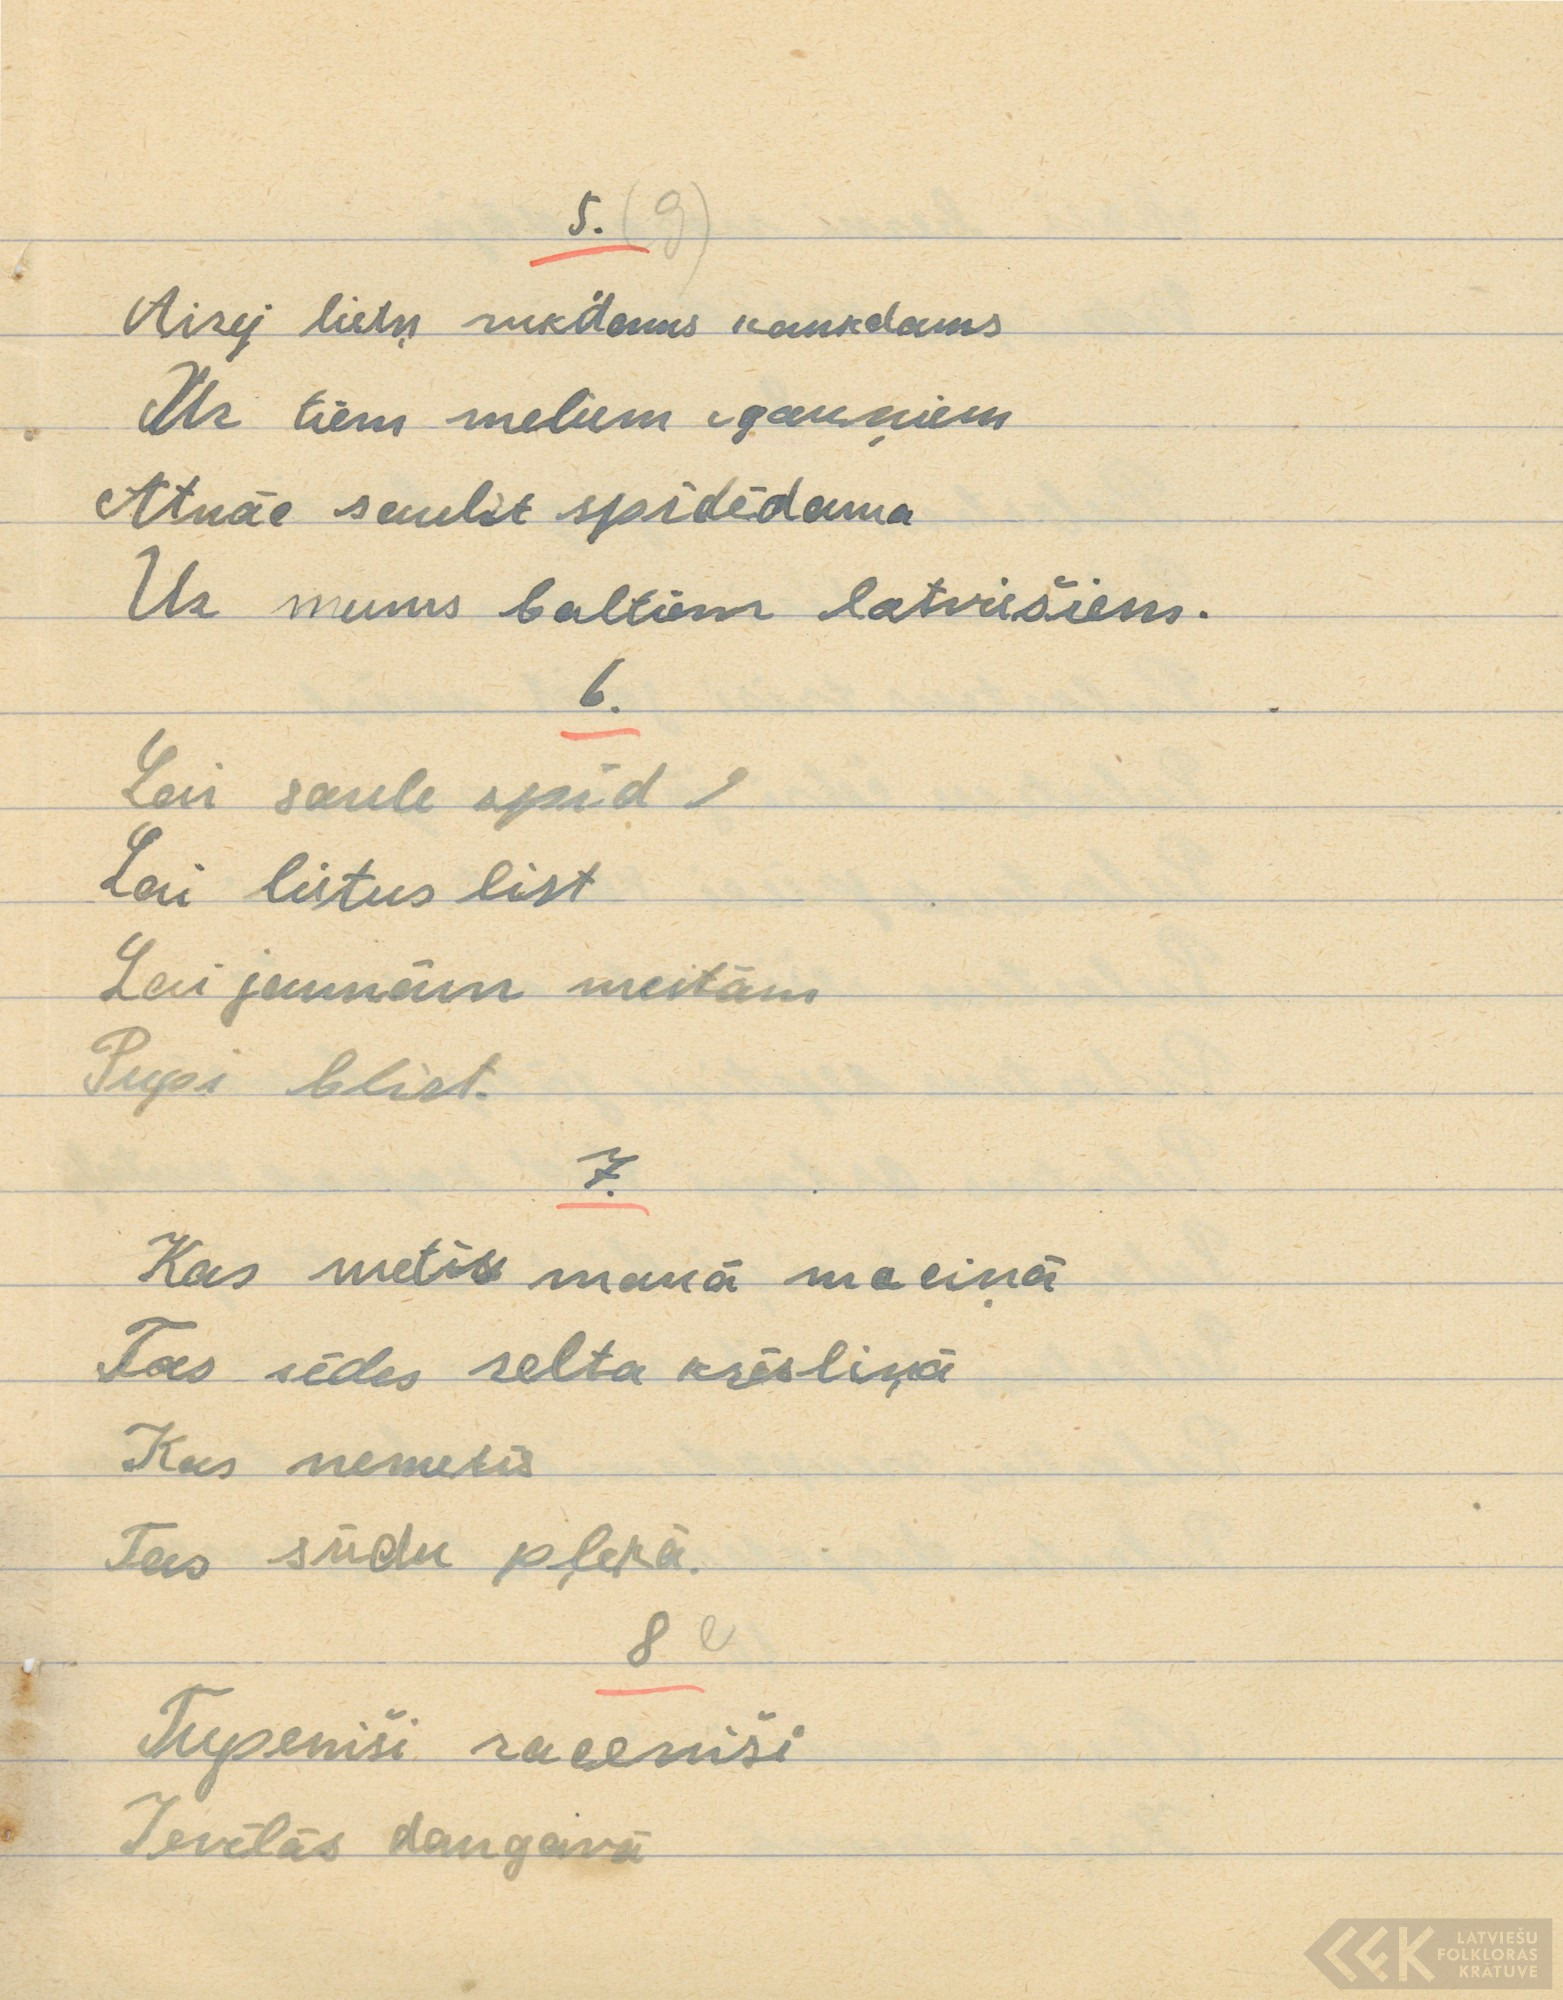 5. (g)
Aizej lietiņ rukdams kaukdams
Uz tiem meliem igauņiem
Atnāc saulit spīdēdama
Uz mums baltiem latviešiem.
6.
Lai saule spīd,
Lai lietus līst
Lai jaunām meitām
Pupi blīst.
7.
Kas metīs manā maciņā
Tas sēdēs zelta krēsliņā
Kas nemetīs
Tas sūdu pļekā.
8 e
Tupeniši raceniši
Ievēlās daugavā
LATVIEŠU
FOLKLORAS
KRĀTUVE